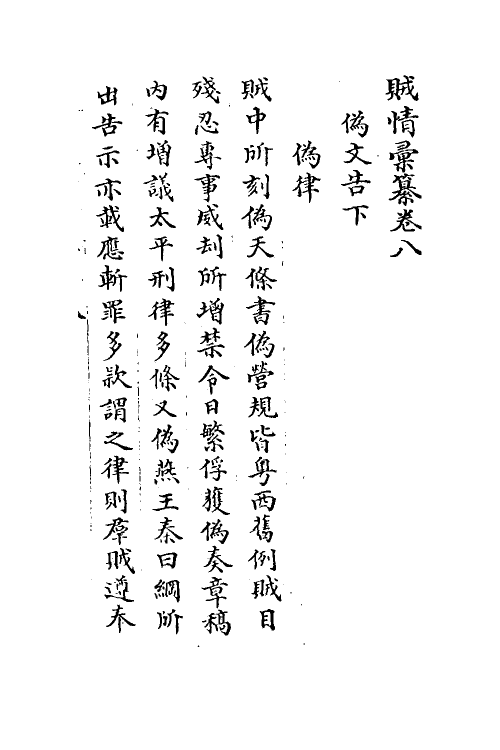 賊情彙纂卷八
偽文告下
偽律
賊中所刻偽天條書偽營規皆粵西舊例賊目
殘忍專事威刦所增禁令日繁俘獲偽奏章稿
內有增議太平刑律多條又偽燕王秦日綱所
出告示亦載應斬罪多款謂之律則羣賊遵奉